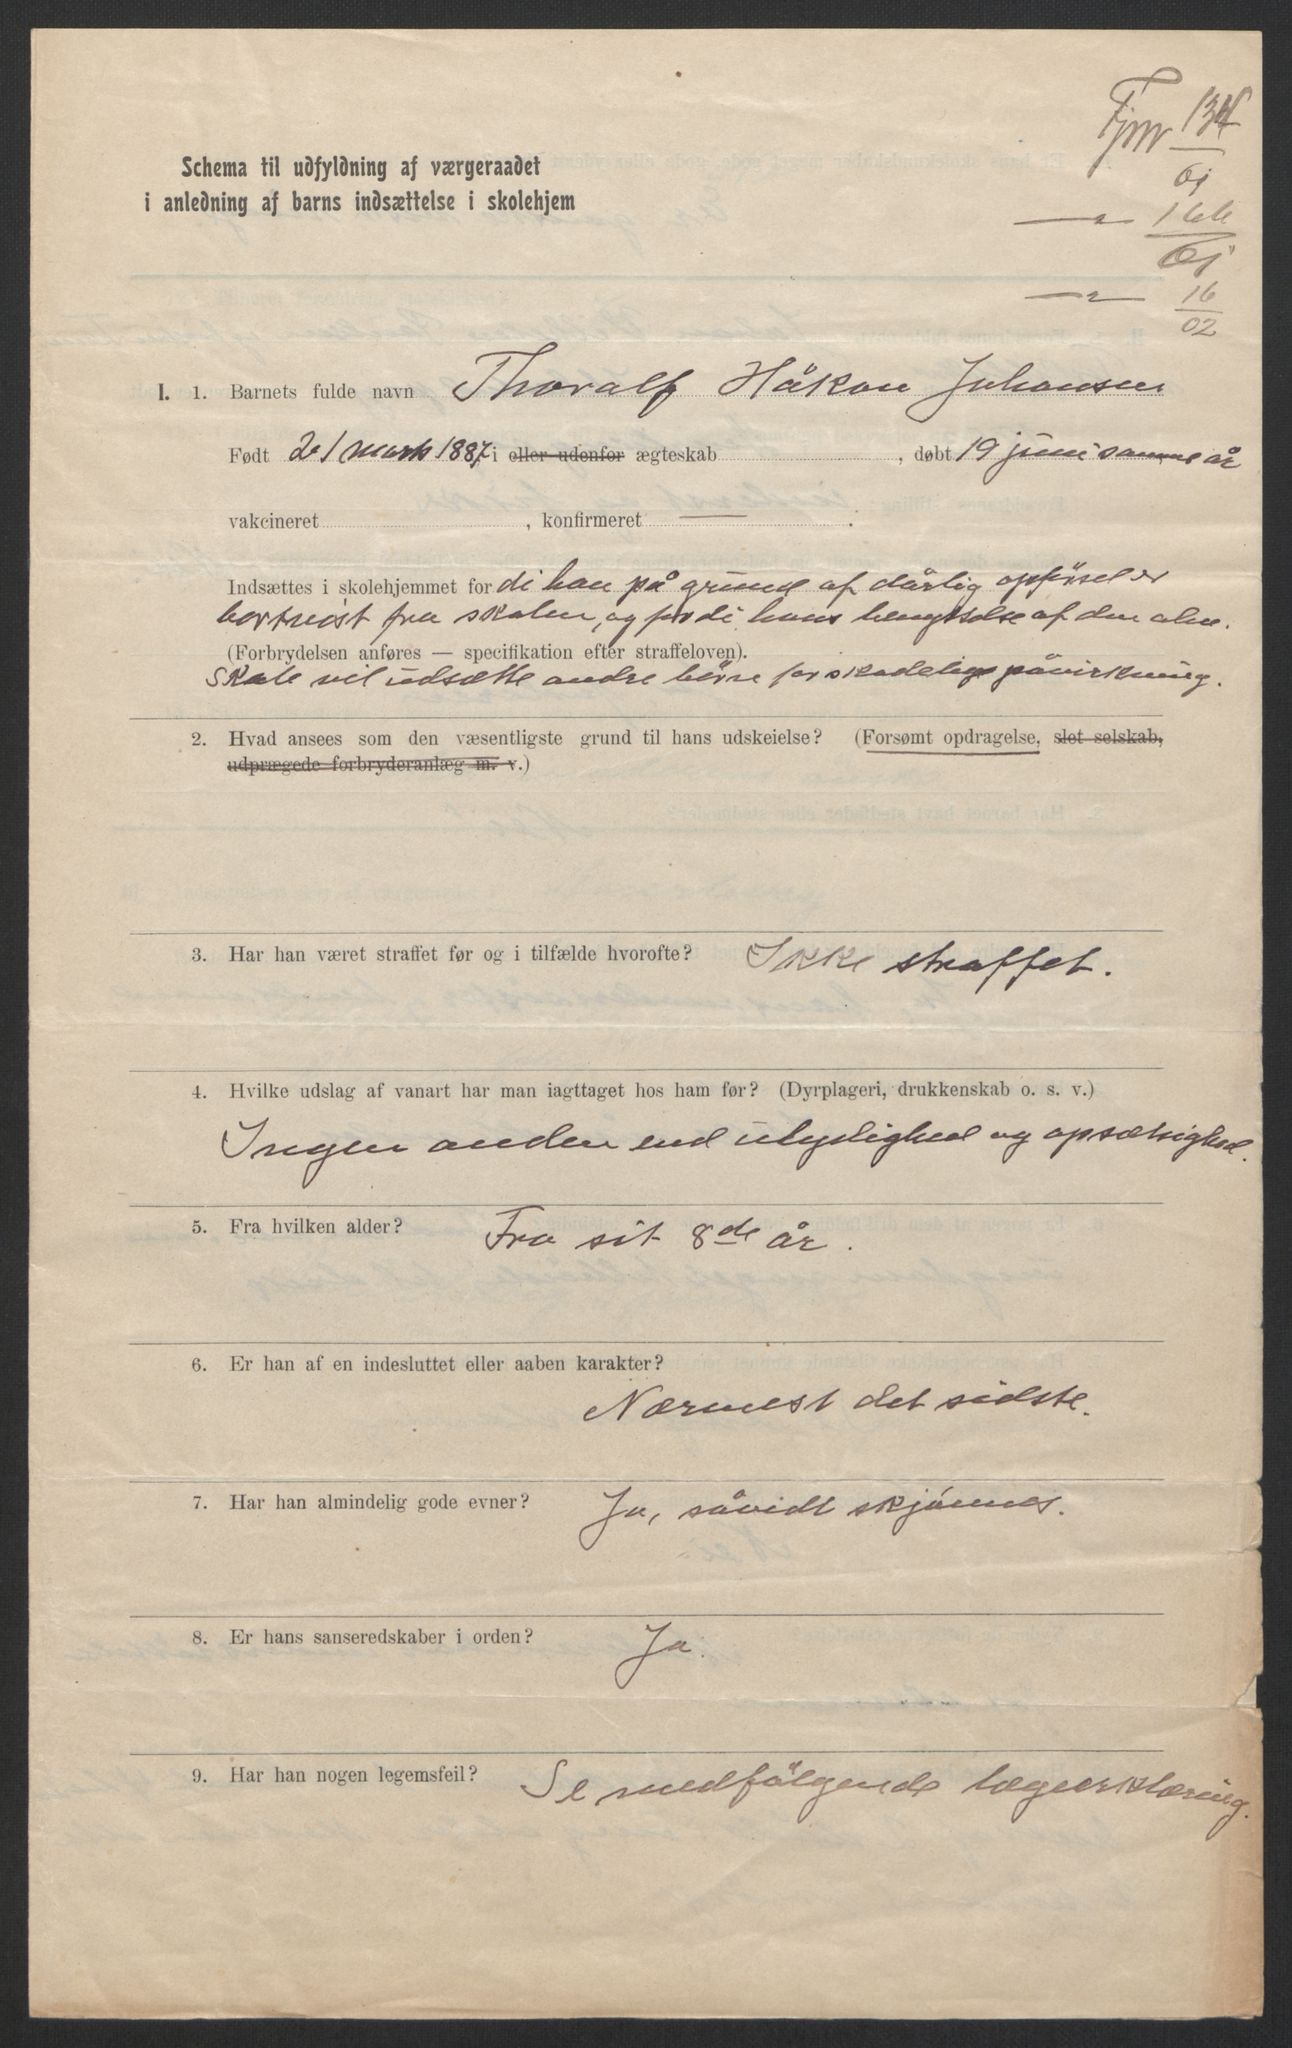 Fjnr 134
01
Schema til udfyldning af værgeraadet
i anledning af barns indsættelse i skolehjem
— " — 166
01
— " — 16
02
I. 1. Barnets fulde navn Thoralf Håkon Johansen
Født 21 marts 1887, i eller udenfor ægteskab , døbt 19 juni samme år
vakcineret , konfirmeret — .
Indsættes i skolehjemmet fordi han på grund af dårlig opførsel er
bortvist fra skolen, og fordi hans benyttelse af den alm.
(Forbrydelsen anføres — specifikation efter straffeloven).
Skole vil udsætte andre børn for skadelig påvirkning.
2. Hvad ansees som den væsentligste grund til hans udskeielse? (Forsømt opdragelse, slet selskab,
udprægede forbryderanlæg m. v.)
3. Har han været straffet før og i tilfælde hvorofte? Ikke straffet.
4. Hvilke udslag af vanart har man iagttaget hos ham før? (Dyrplageri, drukkenskab o. s. v.)
Ingen anden end ulydighed og opsætsighed.
5. Fra hvilken alder? Fra sit 8de år.
6. Er han af en indesluttet eller aaben karakter?
Nærmest det sidste.
7. Har han almindelig gode evner? Ja, såvidt skjønnes.
8. Er hans sanseredskaber i orden? Ja.
9. Har han nogen legemsfeil? Se medfølgende lægeerklæring.